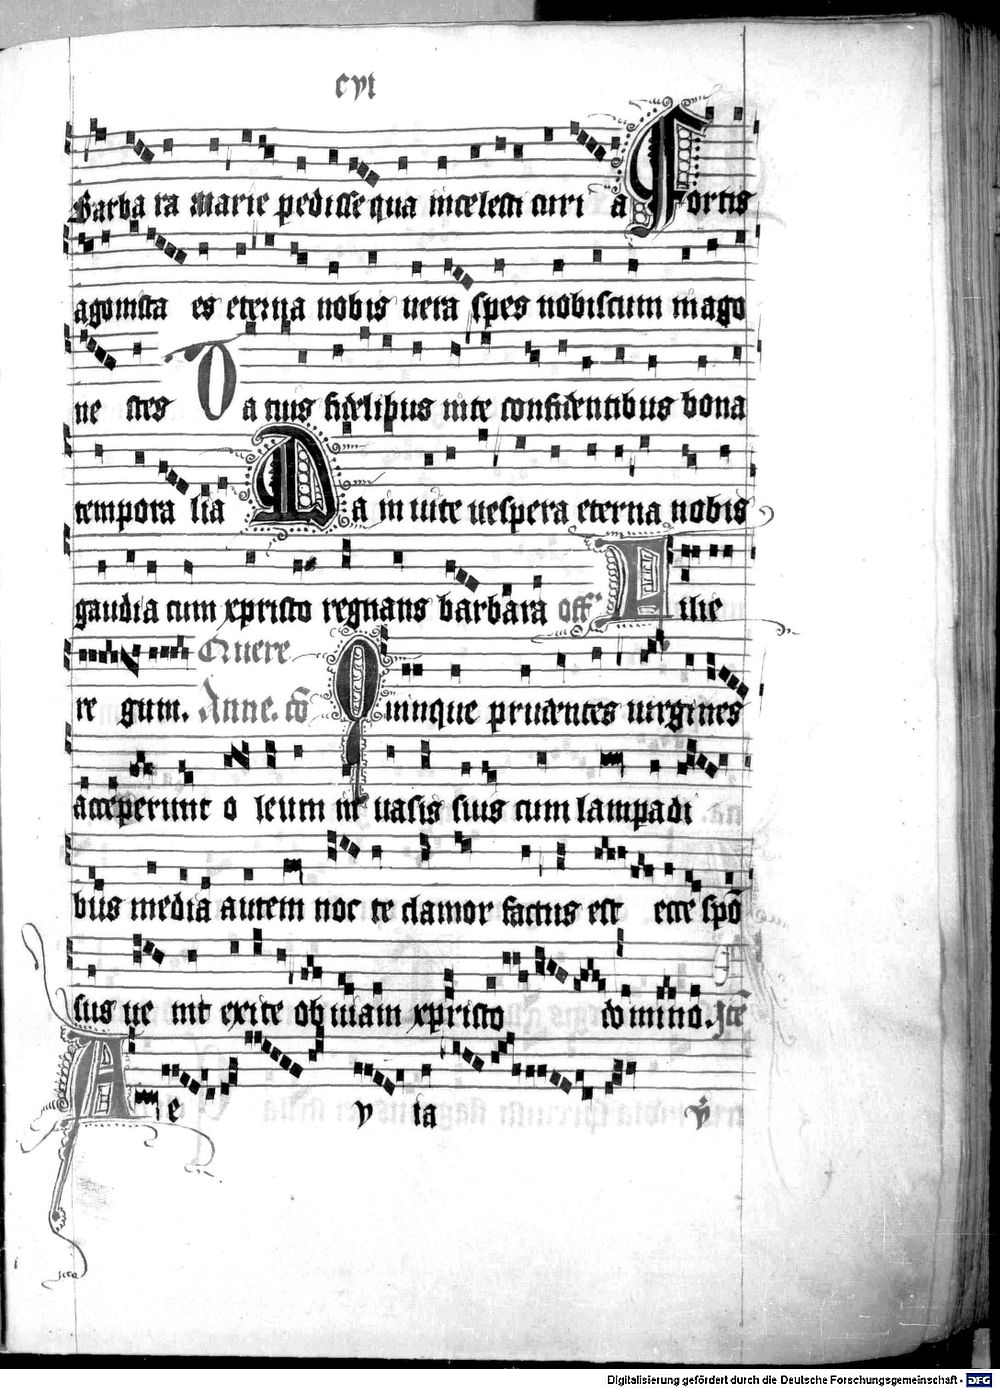 cvi
Barba ra marie pedissequa incelesti curi a Fortis
agonista es eterna nobis uera spes nobiscum mago
ne stes Da tuis fidelibus inte confidentibus bona
tempora lia Da in uite uespera eterna nobis
gaudia cum xpristo regnans barbara off Filie
re gum. Anne. Quinque prudentes uirgines
acceperunt o leum in uasis suis cum lampadi
bus media autem noc te clamor factus est ecce spo
sus ue nit exite obuiam xpristo do mino. Ite
A e v ia
Digitalisierung gefördert durch die Deutsche Forschungsgemeinschaft - DFG